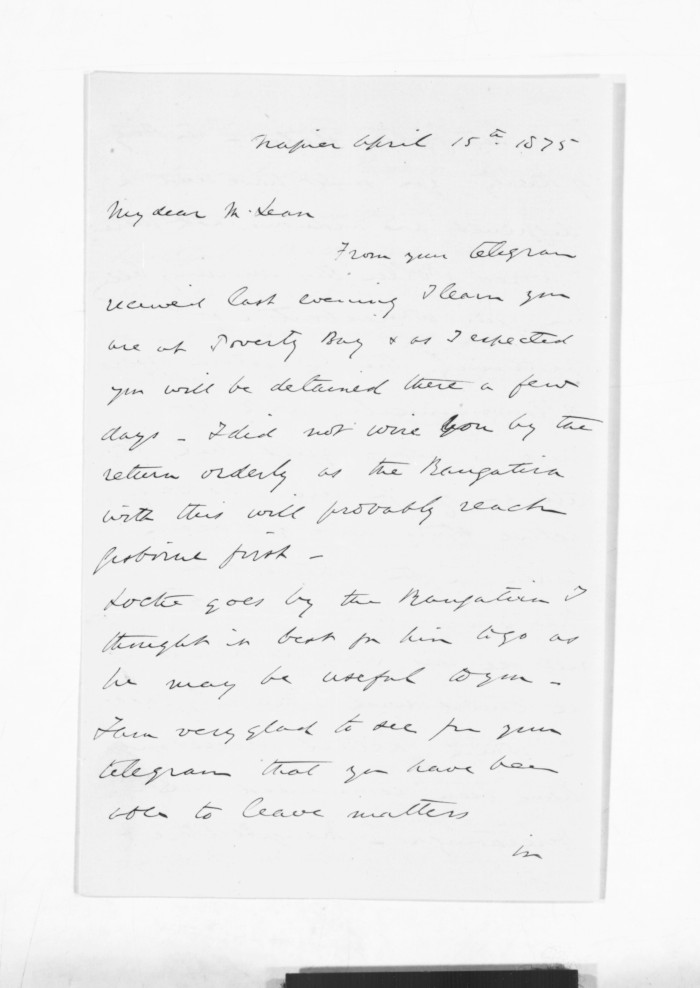 Napier April 15th 1875
My dear McLean
From your telegram
received last evening I learn you
are at Poverty Bay & as I expected
you will be detained there a few
days - I did not wire you by the
return orderly as the Rangatira
with this will probably reach
Gisborne first -
Locke goes by the Rangatira I
thought it best for him to go as
he may be useful to you -
I am very glad to see fm your
telegram that you have been
able to leave matters
in